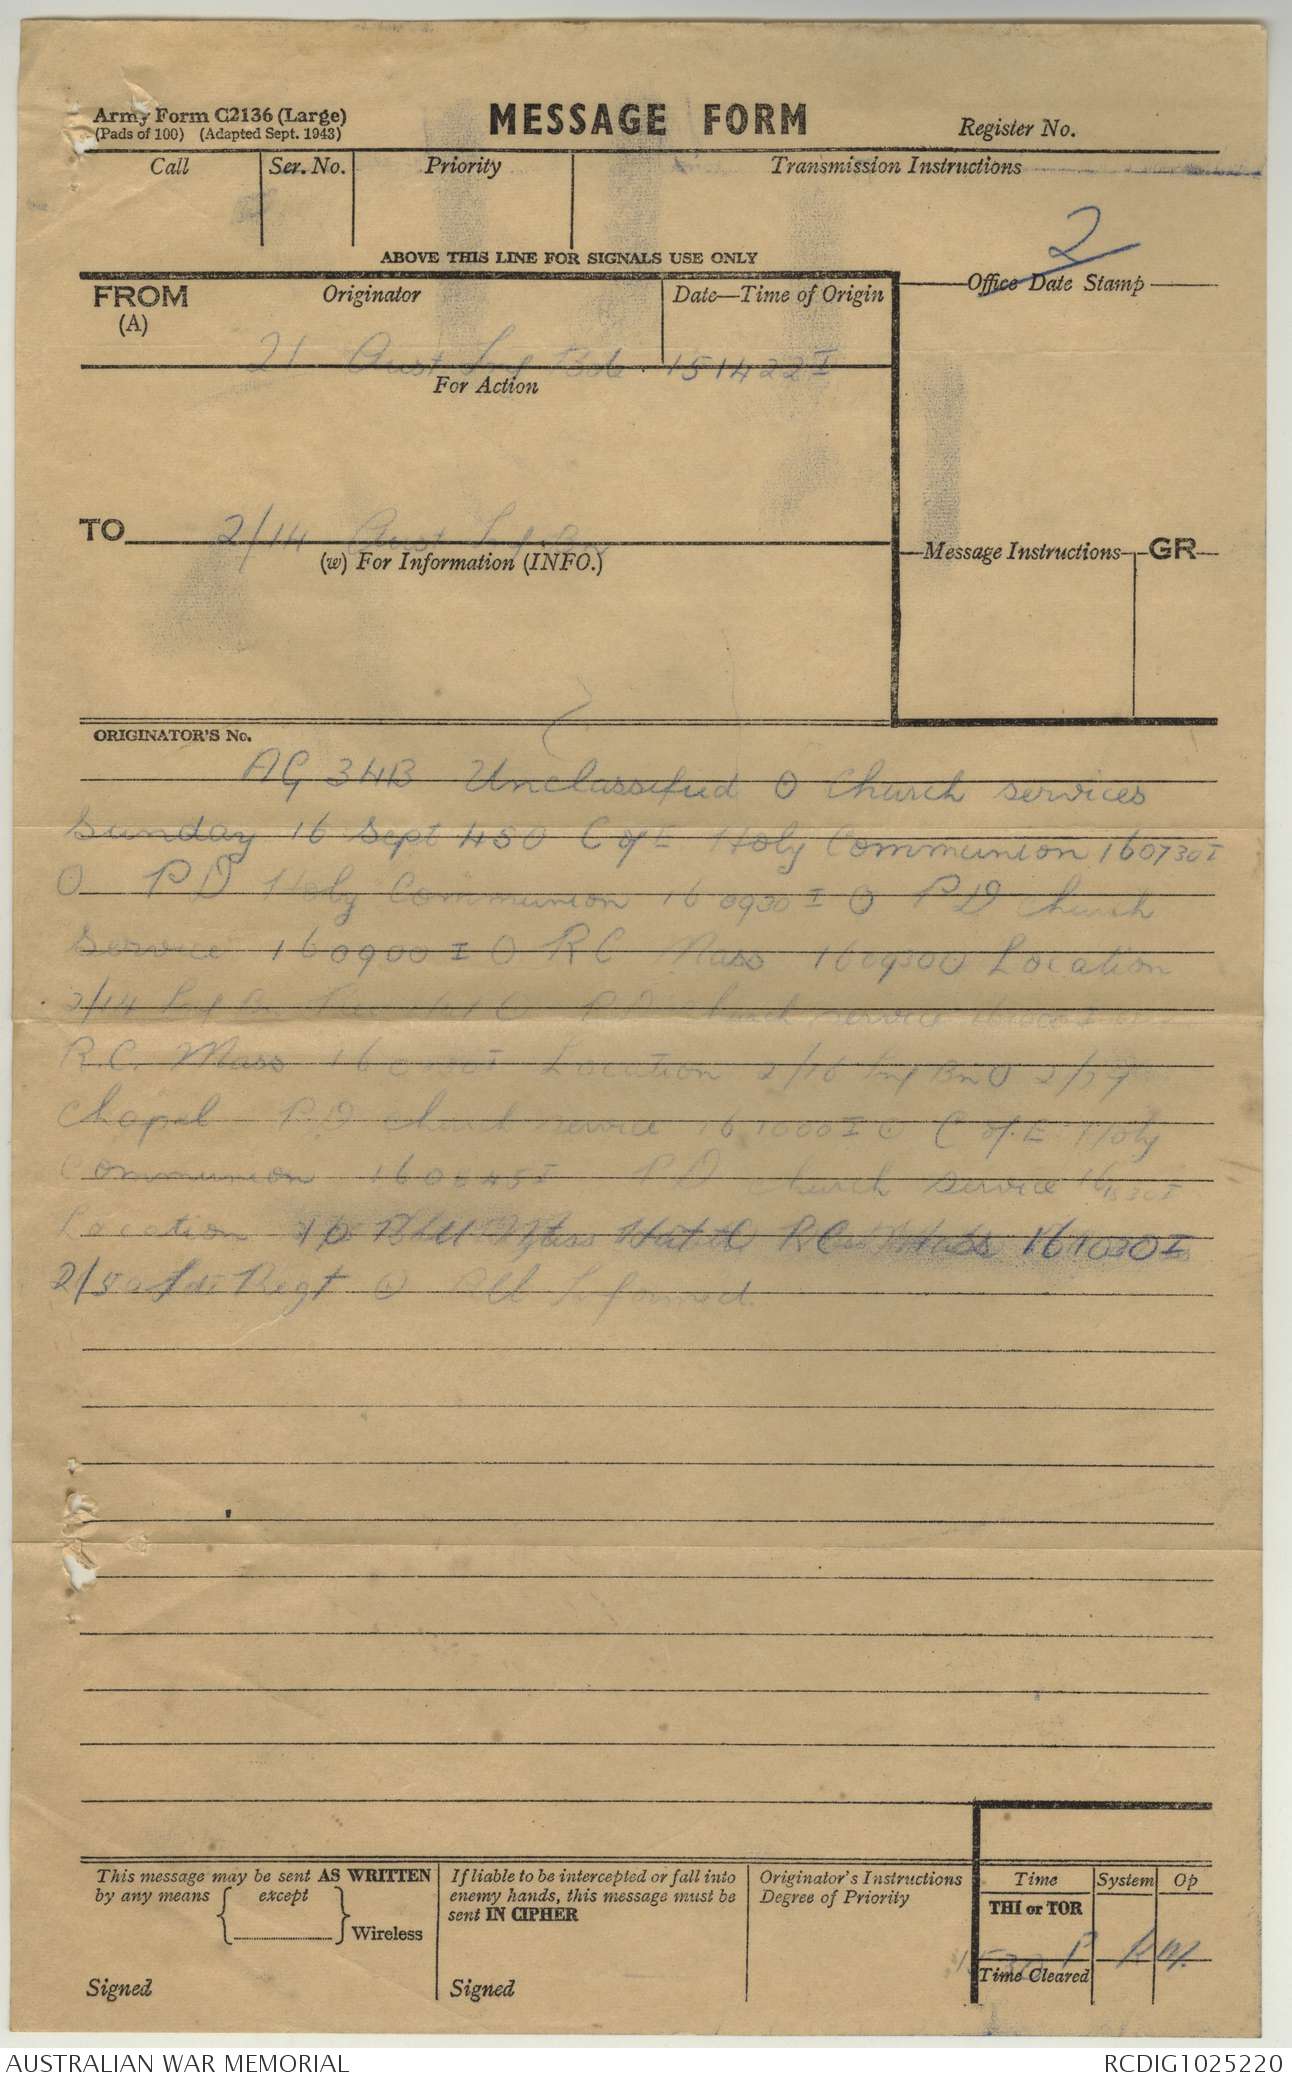 Army Form C2136 (Large)
(Pads of 100) (Adapted Sept. 1943)
MESSAGE FORM
Register No.
Call
Ser. No.
Priority
Transmission Instructions
ABOVE THIS LINE FOR SIGNALS USE ONLY
2
Office Date Stamp
FROM
(A)
Originator
Date—Time of Origin
21 Aust Inf Bde 151422 I
For Action
TO
2/14 Aust Inf Bn
(w) For Information (INFO.)
Message Instructions
GR
ORIGINATOR'S No.
AG 34B Unclassified O Church services
Sunday 16 Sept 45 O C of E Holy Communion 160730 I
O PD Holy Communion 160930 I O PD Church
Service 160900 I O RC Mass 160900 Location
2/14 Inf Bn O PD Church service
R.C. Mass 16 Location 2/16 Inf Bn O 2/
Chapel PD church service 161000 I O C of E Holy
Communion PD church service
Location RC Mass 161030 I
2/5 Regt O All Informed.
This message may be sent AS WRITTEN
by any means { except } Wireless
Signed
If liable to be intercepted or fall into
enemy hands, this message must be
sent IN CIPHER
Signed
Originator's Instructions
Degree of Priority
Time
System
Op
THI or TOR
1530 P
Time Cleared
AUSTRALIAN WAR MEMORIAL
RCDIG1025220